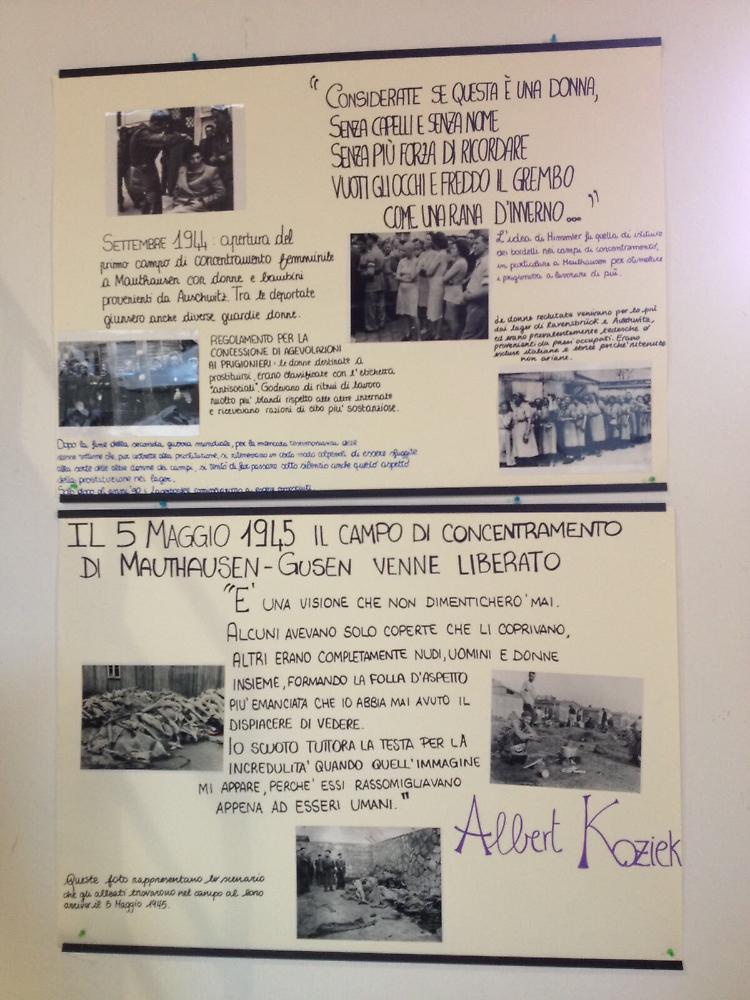 “CONSIDERATE SE QUESTA È UNA DONNA,
SENZA CAPELLI E SENZA NOME
SENZA PIÙ FORZA DI RICORDARE
VUOTI GLI OCCHI E FREDDO IL GREMBO
COME UNA RANA D'INVERNO..."
SETTEMBRE 1944: apertura del
primo campo di concentramento femminile
a Mauthausen con donne e bambini
provenienti da Auschwitz. Tra le deportate
giunsero anche diverse guardie donne.
L'idea di Himmler fu quella di istituire
dei bordelli nei campi di concentramento,
in particolare a Mauthausen per stimolare
i prigionieri a lavorare di più.
REGOLAMENTO PER LA
CONCESSIONE DI AGEVOLAZIONI
AI PRIGIONIERI: le donne destinate a
prostituirsi, erano classificate con l'etichetta
"antisociali". Godevano di ritmi di lavoro
molto più blandi rispetto alle altre internate
e ricevevano razioni di cibo più sostanziose.
Le donne reclutate venivano per lo più
dai lager di Ravensbrück e Auschwitz,
ed erano prevalentemente tedesche o
provenienti da paesi occupati. Erano
escluse italiane e ebree perchè ritenute
non ariane.
Dopo la fine della seconda guerra mondiale, per la mancata testimonianza delle
donne vittime che, pur costrette alla prostituzione, si ritenevano in certo modo colpevoli di essere sfuggite
alla sorte delle altre donne dei campi, si tentò di far passare sotto silenzio anche questo aspetto
della prostituzione nei lager.
Solo dopo gli anni '90 i
IL 5 MAGGIO 1945 IL CAMPO DI CONCENTRAMENTO
DI MAUTHAUSEN-GUSEN VENNE LIBERATO
“E' UNA VISIONE CHE NON DIMENTICHERO' MAI.
ALCUNI AVEVANO SOLO COPERTE CHE LI COPRIVANO,
ALTRI ERANO COMPLETAMENTE NUDI, UOMINI E DONNE
INSIEME, FORMANDO LA FOLLA D'ASPETTO
PIU' EMANCIATA CHE IO ABBIA MAI AVUTO IL
DISPIACERE DI VEDERE.
IO SCUOTO TUTTORA LA TESTA PER LA
INCREDULITA' QUANDO QUELL'IMMAGINE
MI APPARE, PERCHE' ESSI RASSOMIGLIAVANO
APPENA AD ESSERI UMANI."
Albert Koziek
Queste foto rappresentano lo scenario
che gli alleati trovarono nel campo al loro
arrivo il 5 Maggio 1945.